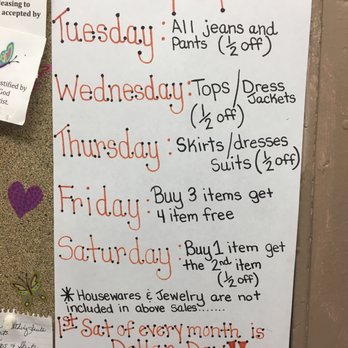 easing to
accepted by
Tuesday: All jeans and
Pants (1/2 off)
Wednesday: Tops/Dress
Jackets
(1/2 off)
Thursday: Skirts/dresses
Suits (1/2 off)
Friday: Buy 3 items get
4 item free
Saturday: Buy 1 item get
the 2nd item
(1/2 off)
* Housewares & Jewelry are not
included in above sales.......
1st Sat of every month is
Dollar Day!!
stified by
God
rist.